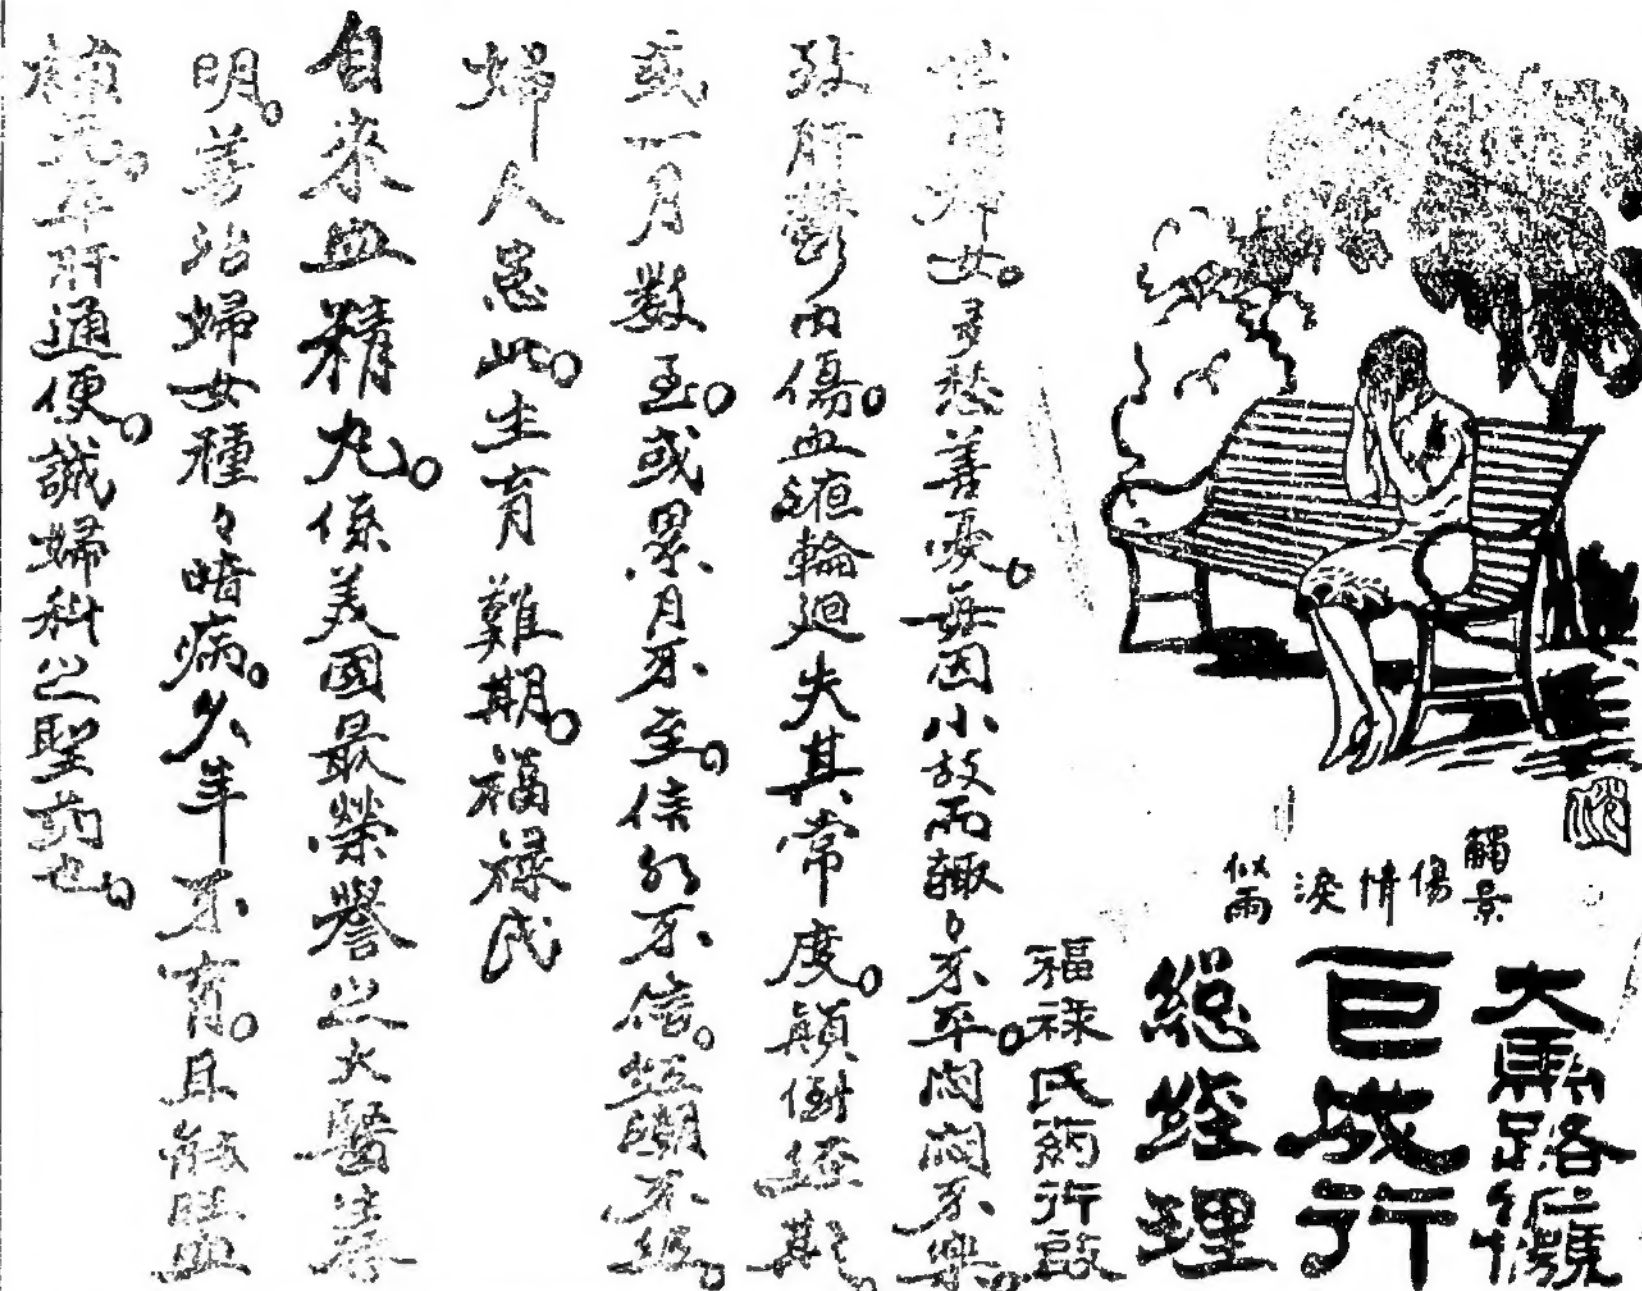 觸景傷情淚似雨
大馬路
巨成行
總經理
福祿氏葯行啟
世間婦女。多愁善憂。每因小故而輒々不平。悶悶不樂。
致肝鬱內傷。血液輪迴失其常度。顛倒經期。
或一月數至。或累月不至。不信。經潮不
婦人患此。生育難期。福祿氏
自來血精丸。係美國最榮譽之大醫生發
明。善治婦女種々暗病。久年不育。且能旺血
補元。平肝通便。誠婦科之聖葯也。